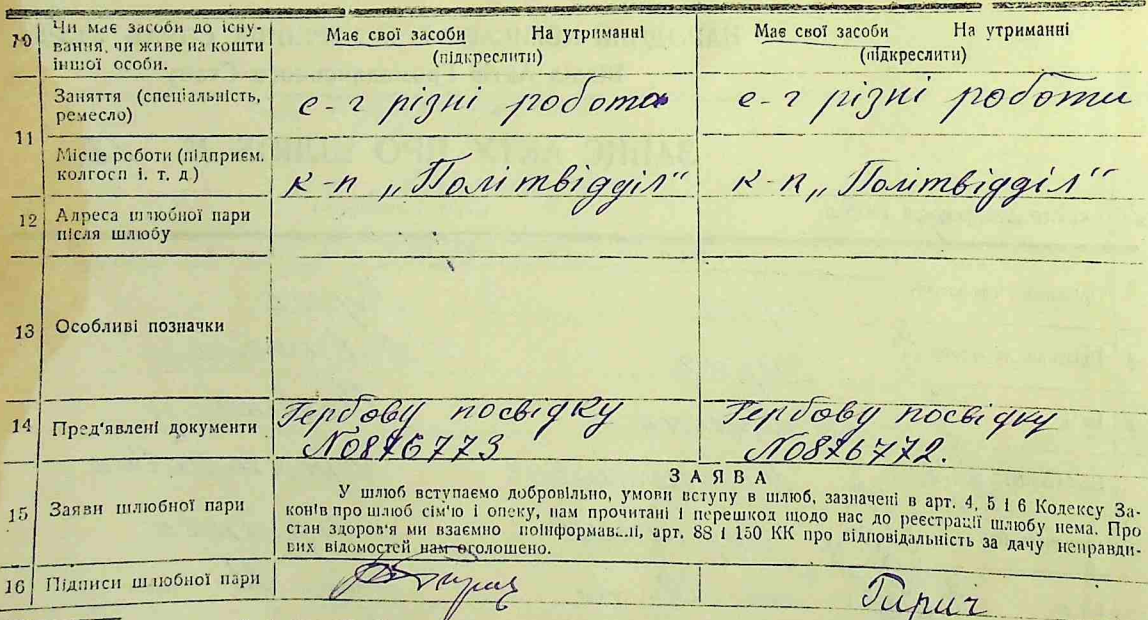 10 Чи має засоби до існу-
вання, чи живе на кошти
іншої особи.
Має свої засоби На утриманні
(підкреслити)
Має свої засоби На утриманні
(підкреслити)
11 Заняття (спеціальність,
ремесло)
с-г різні робота
с-г різні роботи
Місце роботи (підприєм.
колгосп і. т. д)
к-п „Політвідділ"
к-п „Політвідділ"
12 Адреса шлюбної пари
після шлюбу
13 Особливі позначки
14 Пред'явлені документи
Гербову посвідку
№876773
Гербову посвідку
№876772.
15 Заяви шлюбної пари
ЗАЯВА
У шлюб вступаємо добровільно, умови вступу в шлюб, зазначені в арт. 4, 5 і 6 Кодексу За-
конів про шлюб сім'ю і опеку, нам прочитані і перешкод щодо нас до реєстрації шлюбу нема. Про
стан здоров'я ми взаємно поінформавалі, арт. 88 і 150 КК про відповідальність за дачу неправди-
вих відомостей нам оголошено.
16 Підписи шлюбної пари
Гирич
Гирич